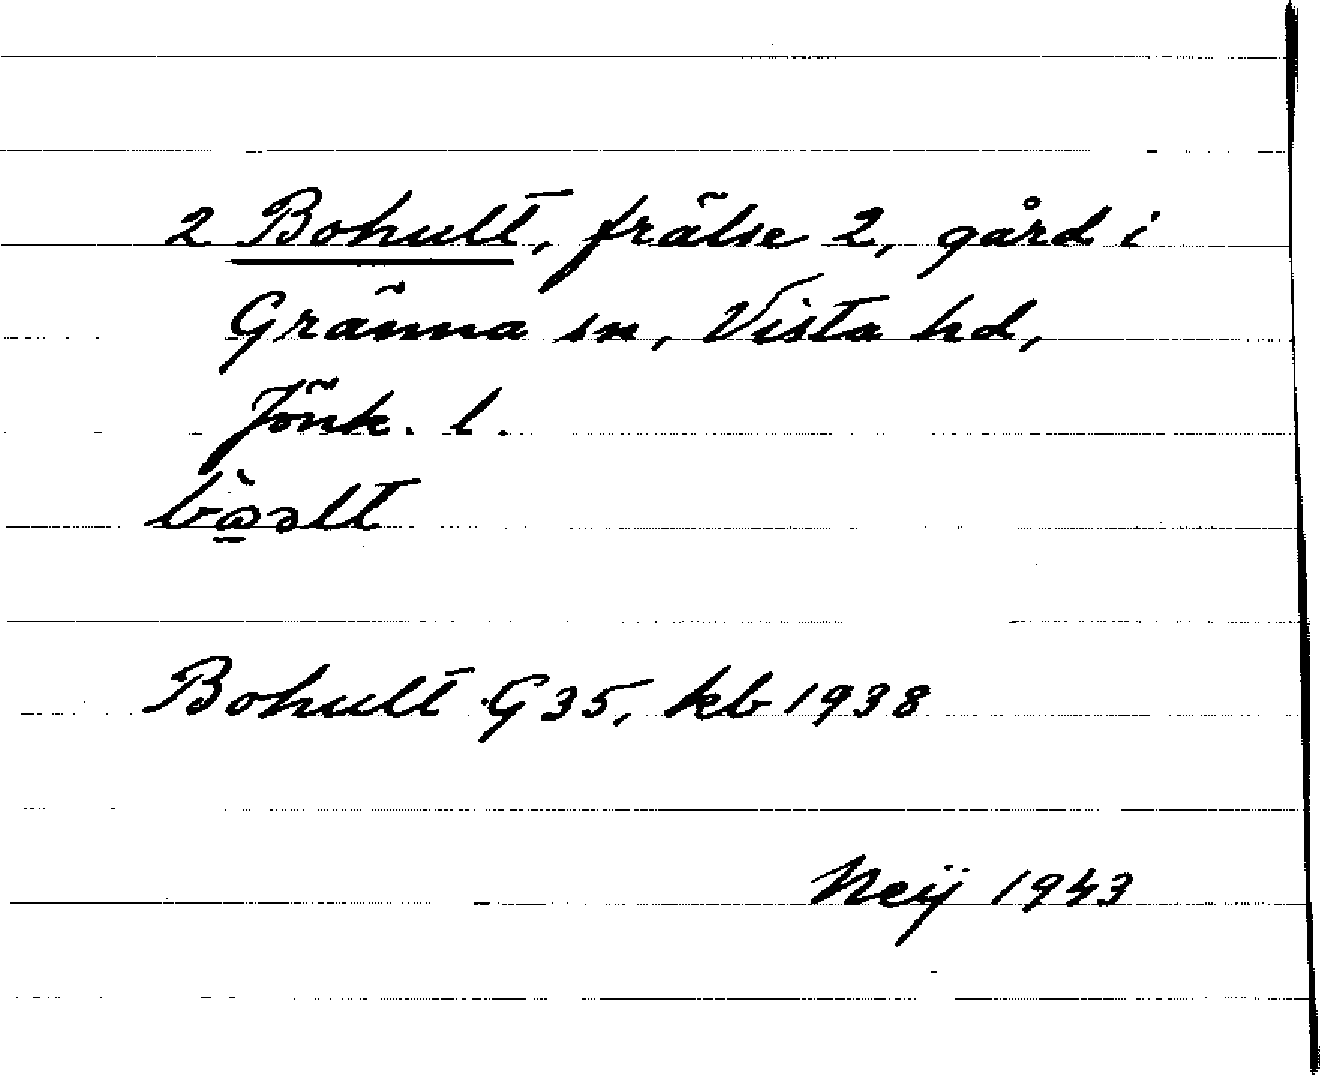 2 Bohult, frälse 2, gård i
Gränna sn, Vista hd,
Jönk. l.
Bohult G35, kb 1938
Neij 1943